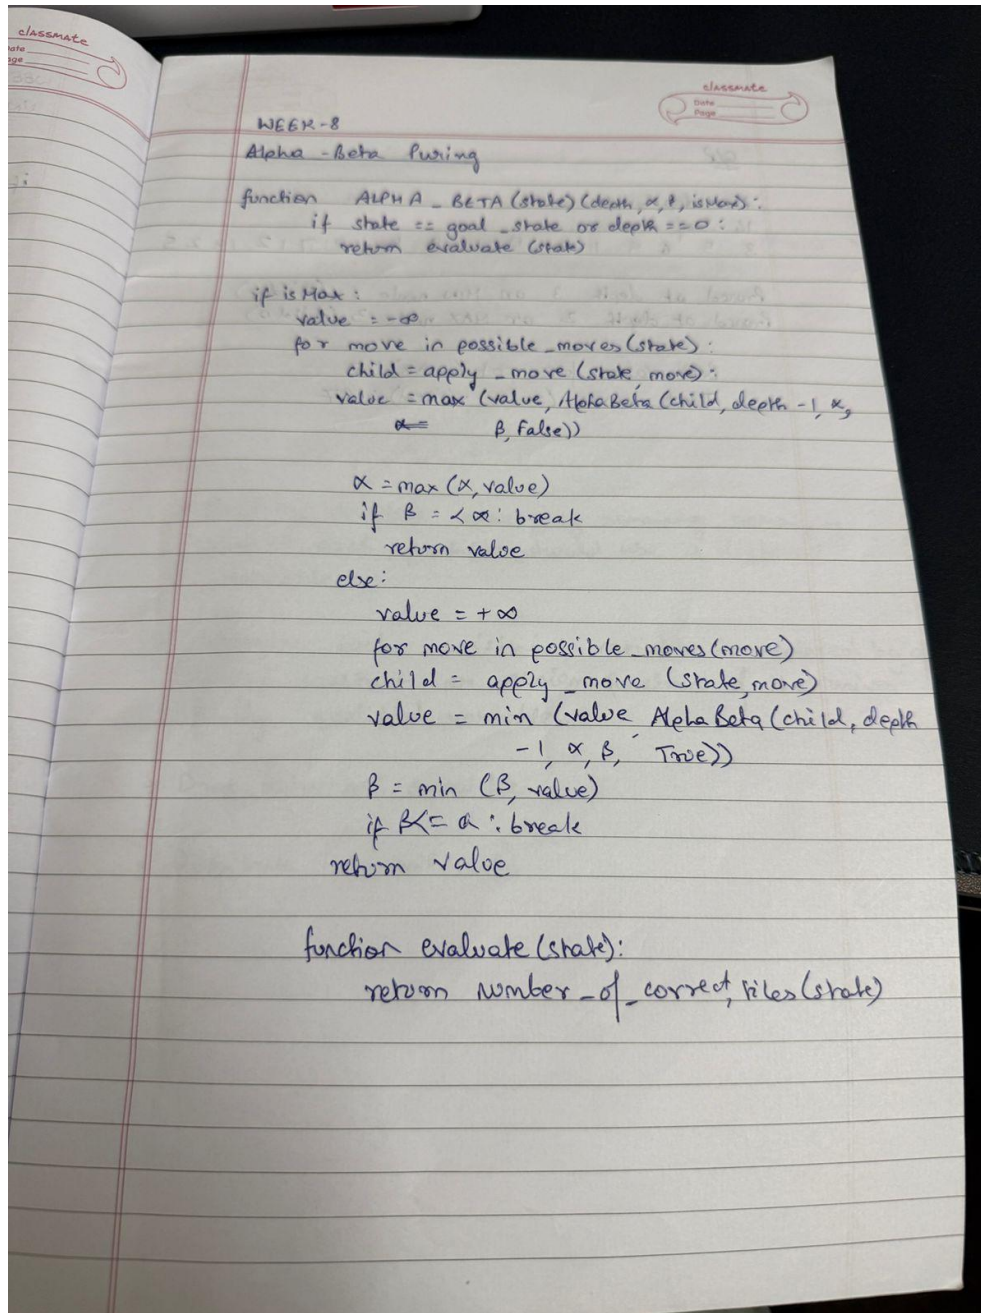 classmate
Date
Page
classmate
Date
Page
WEEK-8
Alpha-Beta Puring
function ALPHA_BETA (state) (depth, α, β, isMax):
if state == goal_state or depth ==0:
return evaluate (state)
if is Max:
value = -∞
for move in possible_moves (state):
child = apply_move (state, move):
value = max (value, AlphaBeta (child, depth -1, α,
β, False))
α = max (α, value)
if β = < α: break
return value
else:
value = +∞
for move in possible_moves (move)
child = apply_move (state, move)
value = min (value, AlphaBeta (child, depth
-1, α, β, True))
β = min (β, value)
if β <= α: break
return value
function evaluate (state):
return number_of_correct, tiles (state)